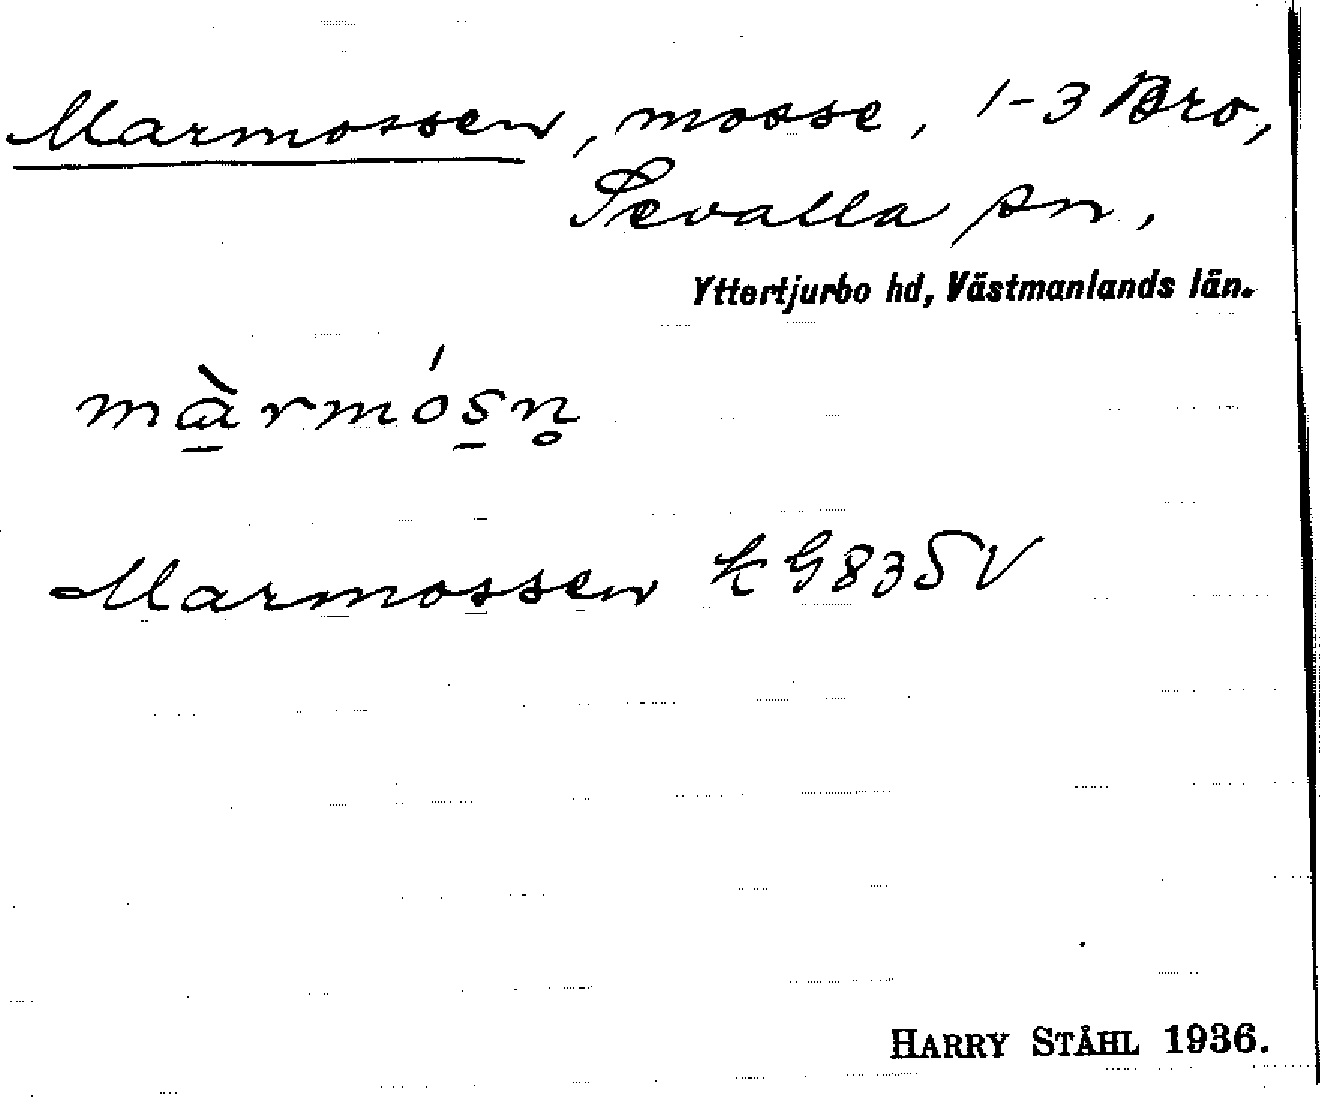 Marmossen, mosse, 1-3 Bro,
Sevalla sn.
Yttertjurbo hd, Västmanlands län.
mа̀rmósn̥
Marmossen k G 83 SV
HARRY STÅHL 1936.